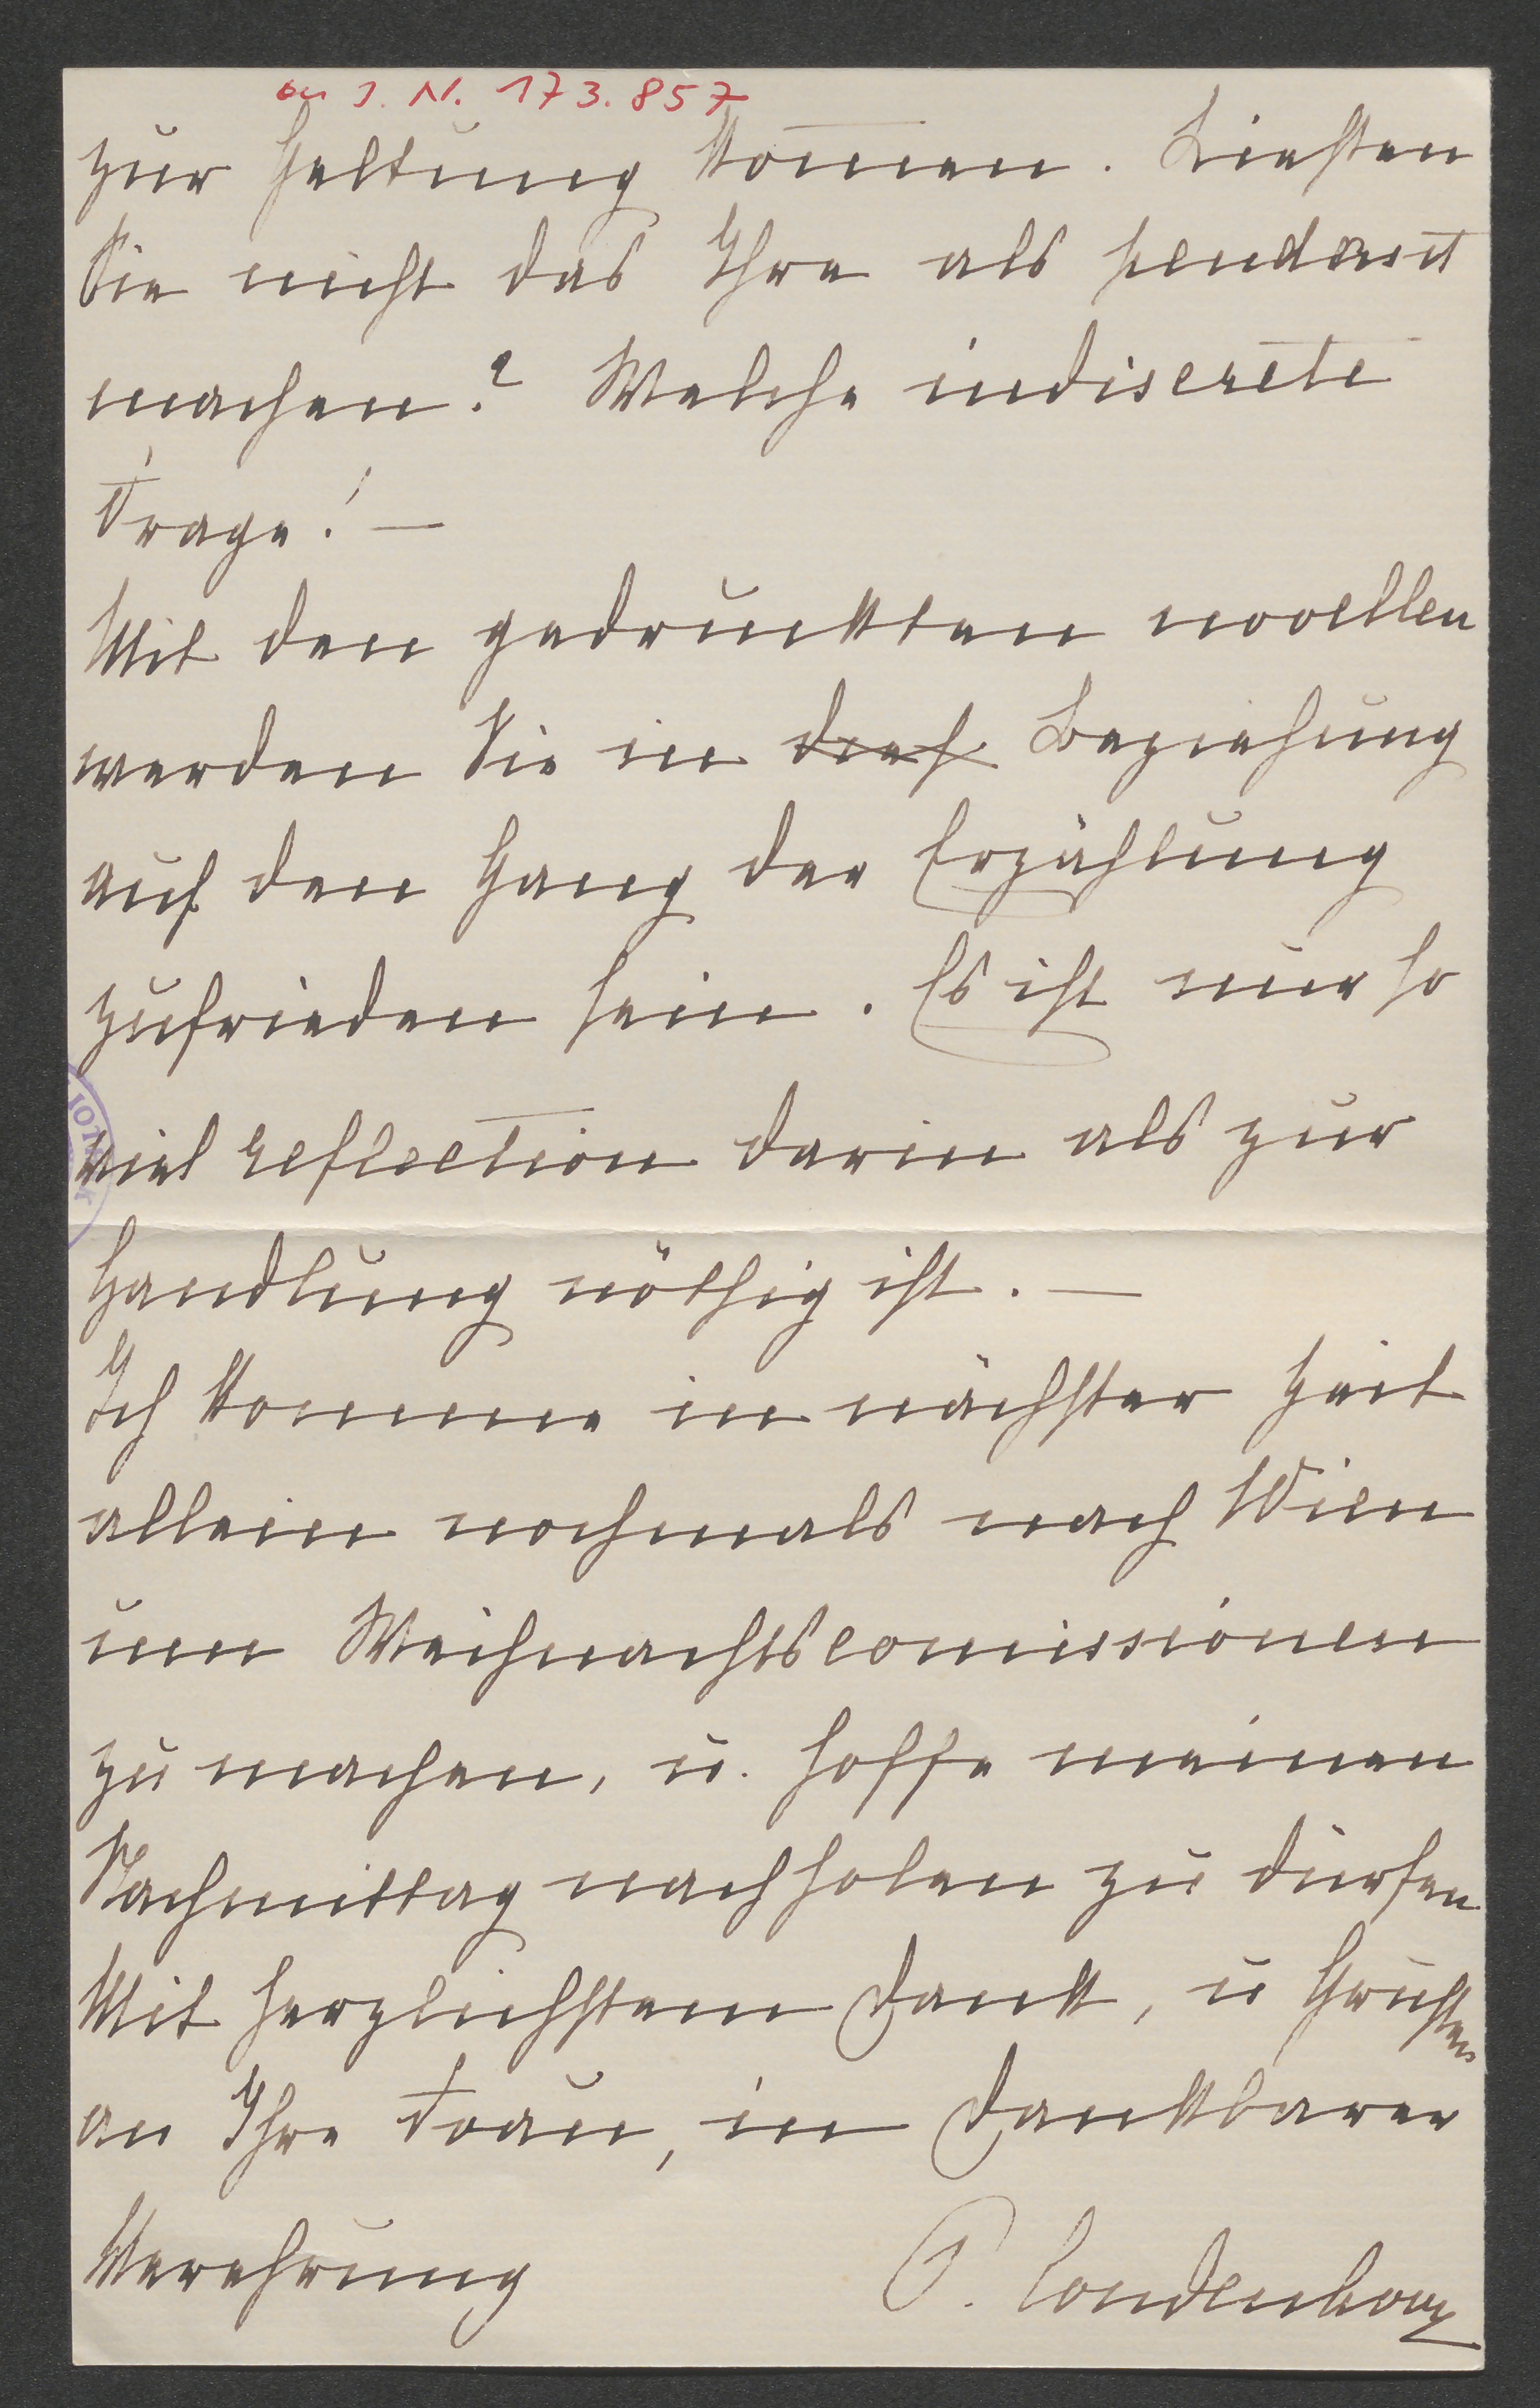 zu J. N. 173.857
zur Geltung kom̅en. Ließen
Sie nicht das Ihre als pendant
machen? Welche indiscrete
Frage! —
Mit den gedruckten novellen
werden Sie in dies Beziehung
auf den Gang der Erzählung
zufrieden sein. Es ist nur so
viel reflection darin als zur
Handlung nöthig ist. —
Ich komme in nächster Zeit
allein nochmals nach Wien
um Weihnachtscomissionen
zu machen, u. hoffe meinen
Nachmittag nachholen zu dürfen
Mit herzlichstem Dank, u Grüßen
an Ihre Frau, in dankbarer
Verehrung
P. Coudenhove